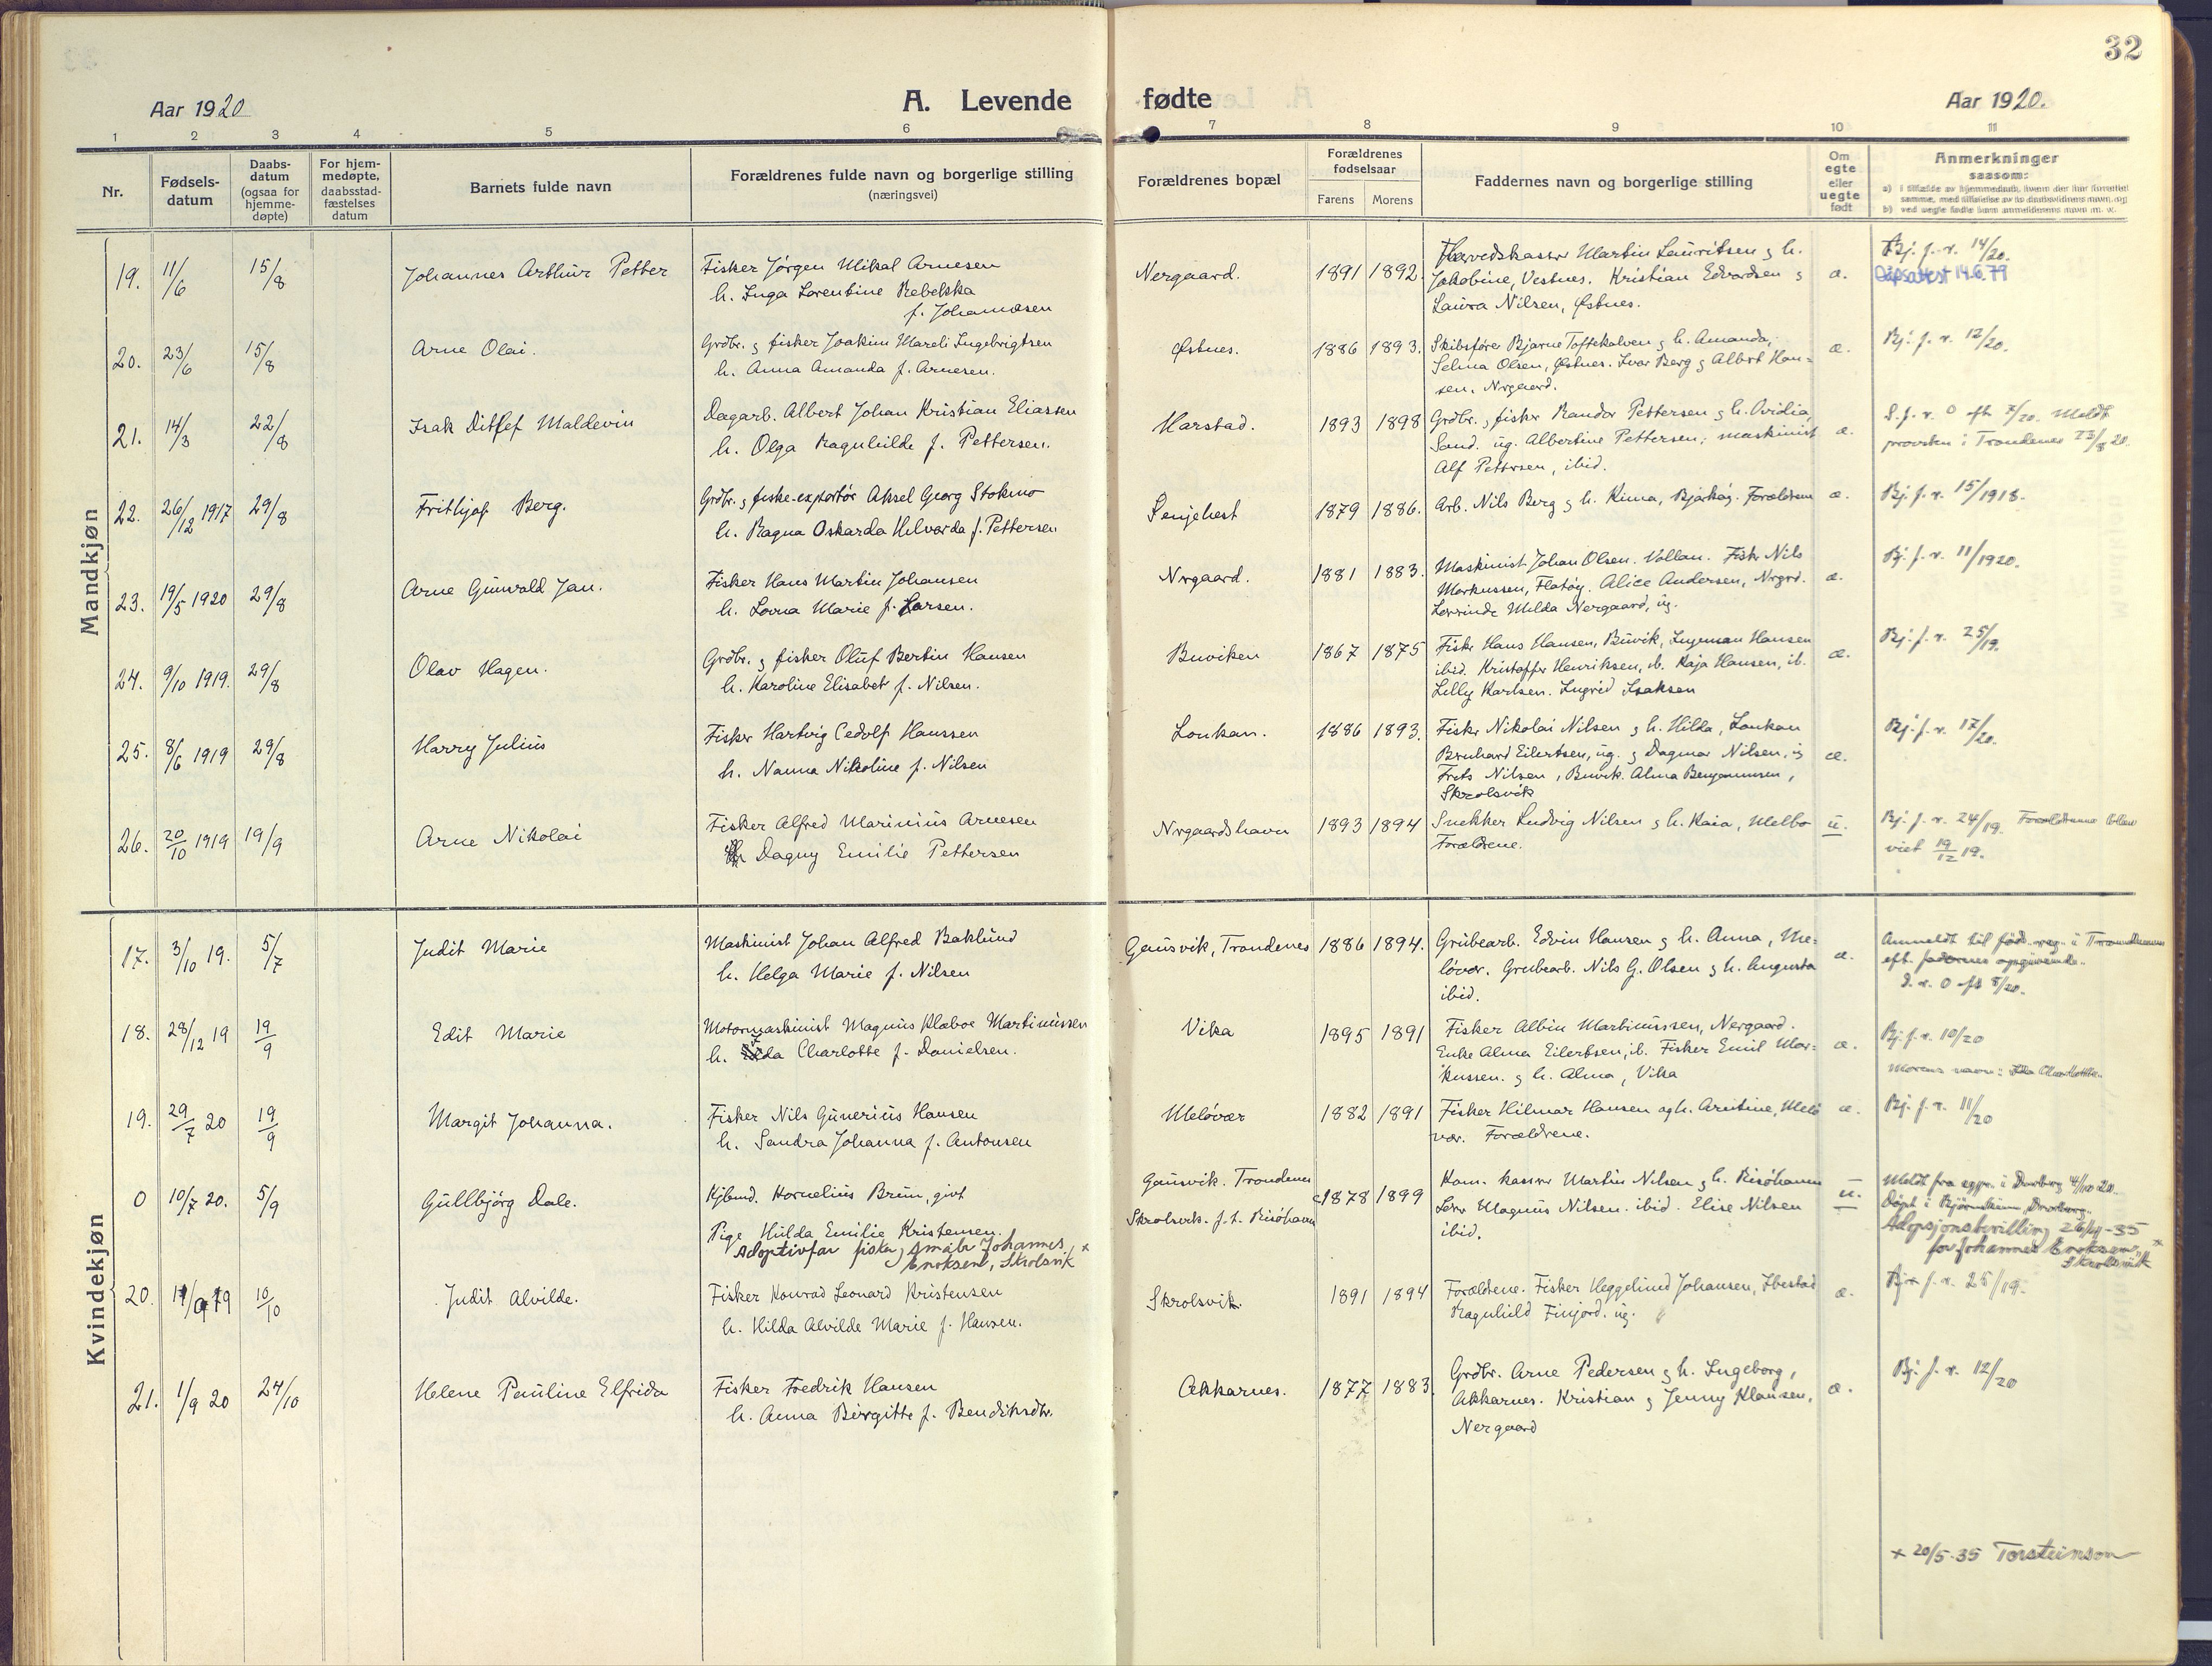 32
Aar 1920
A. Levende fødte
Aar 1920.
1 2 3 4 5 6 7 8 9 10 11
Nr.
Fødsels-
datum
Daabs-
datum
(ogsaa for
hjemme-
døpte)
For hjem-
medøpte,
daabsstad-
fæstelses
datum
Barnets fulde navn
Forældrenes fulde navn og borgerlige stilling
(næringsvei)
Forældrenes bopæl
Forældrenes
fødselsaar
Farens Morens
Faddernes navn og borgerlige stilling
Om
egte
eller
uegte
født
Anmerkninger
saasom:
a) i tilfælde av hjemmedaab, hvem der har forrettet
samme, med tilføielse av to daabsvidners navn, og
b) ved uegte fødte barn anmelderens navn m. v.
Mandkjøn
19. 11/6 15/8 Johannes Arthur Petter
Fisker Jørgen Mikal Arnesen
h. Inga Lorentine Rebekka
f. Johannesen
Nergaard. 1891 1892.
Herredskasser Martin Lauritsen g h.
Jakobine, Vestnes. Kristian Edvardsen g
Laura Nilsen, Østnes.
æ.
Bj. f. r. 14/20.
Dåpsattest 14.6.79
20. 23/6 15/8 Arne Olai.
Grdbr. g fisker Joakim Mareli Ingebrigtsen
h. Anna Amanda f. Arnesen.
Østnes. 1886 1893.
Skibsfører Bjarne Toftekalven g h. Amanda,
Selma Olsen, Østnes. Ivar Berg g Albert Han-
sen, Nrgaard.
æ.
Bj. f. r. 12/20.
21. 14/3 22/8 Isak Ditlef Maldevin
Dagarb. Albert Johan Kristian Eliassen
h. Olga Ragnhilde f. Pettersen.
Harstad. 1893 1898
Grdbr. g fisker Randor Pettersen g h. Ovidia,
Sand. ug. Albertine Pettersen; maskinist
Alf Pettersen, ibid.
æ.
S. f. r. 0 eft 7/20. Meldt
provsten i Trondenes 23/8 20.
22. 26/12 1917 29/8 Frithjof Berg.
Grdbr. g fiske-exportør Aksel Georg Stokmo
h. Ragna Oskarda Helvarda f. Pettersen
Senjehest 1879 1886.
Arb. Nils Berg g h. Kinna, Bjarkøy. Forældrene
æ.
Bj. f. r. 15/1918.
23. 19/5 1920 29/8 Arne Gunvald Jan.
Fisker Hans Martin Johansen
h. Lovna Marie f. Larsen.
Nrgaard. 1881 1883.
Maskinist Johan Olsen. Vollan. Fiskr Nils
Markussen, Flatøy. Alice Andersen, Nrgrd.
Lærerinde Milda Nergaard, ug.
æ.
Bj. f. r. 11/1920.
24. 9/10 1919. 29/8 Olav Hagen.
Grdbr. g fisker Oluf Bertin Hansen
h. Karoline Elisabet f. Nilsen.
Buviken 1867 1875
Fiskr Hans Hansen, Buvik, Ingeman Hansen
ibid. Kristoffer Henriksen, ib. Kaja Hansen, ib.
Lilly Karlsen. Ingrid Isaksen
æ.
Bj. f. r. 25/19.
25. 8/6 1919 29/8 Harry Julius
Fisker Hartvig Cedolf Hanssen
h. Nanna Nikoline f. Nilsen
Lonkan. 1886 1893.
Fiskr Nikolai Nilsen g h. Hilda, Lonkan
Bernhard Eilertsen, ug. g Dagmar Nilsen, ug
Frits Nilsen, Buvik. Alma Benjaminsen,
Skrolsvik
æ.
Bj. f. r. 17/20.
26. 20/10 1919 19/9 Arne Nikolai
Fisker Alfred Marinius Arnesen
Dagny Emilie Pettersen
Nrgaardshavn 1893 1894
Snekker Ludvig Nilsen g h. Kaia, Melbo
Forældrene.
u.
Bj. f. r. 24/19. Forældrene blev
viet 19/12 19.
Kvindekjøn
17. 3/10 19. 5/7 Judit Marie
Maskinist Johan Alfred Baklund
h. Helga Marie f. Nilsen
Gausvik, Trondenes 1886 1894.
Grubearb. Edvin Hansen g h. Anna, Me-
løvær. Grubearb. Nils G. Olsen g h. Augusta
ibid.
æ.
Anmeldt til føds. reg. i Trondenes
eft. faderens opgivende.
S. r. 0 eft 8/20.
18. 28/12 19 19/9 Edit Marie
Motormaskinist Magnus Klæboe Martinussen
h. Ida Charlotte f. Danielsen.
Vika 1895 1891
Fisker Albin Martinussen, Nergaard.
Enke Alma Eilertsen, ib. Fisker Emil Mar-
kussen. g h. Alma, Vika
æ.
Bj. f. r. 10/20
Morens navn: Ida Charlotte.
19. 29/7 20 19/9 Margit Johanna.
Fisker Nils Gunerius Hansen
h. Sandra Johanna f. Antonsen
Meløvær 1882 1891
Fisker Hilmar Hansen og h. Arntine, Melø
vær. Forældrene.
æ.
Bj. f. r. 11/20
0 10/7 20. 5/9 Gullbjørg Dale.
Kjbmd. Kornelius Brun, givt
Pige Hulda Emilie Kristensen.
Adoptivfar fisker, småbr Johannes x
Enoksen, Skrolsvik
Gausvik. Trondenes
Skrolsvik. f. t. Risøhavn
c1878 1899
Kom. kasserer Martin Nilsen g h. Risøhavn
Lærer Magnus Nilsen. ibid. Elise Nilsen
ibid.
u.
Meldt fra sgpr. i Dverberg 4/10 20.
Døpt i Bjørnskinn, Dverberg.
Adopsjonsbevilling 26/4-35
for Johannes Enoksen, x
Skrolsvik
20. 10/10 Judit Alvilde.
Fisker Konrad Leonard Kristensen
h. Hilda Alvilde Marie f. Hansen.
Skrolsvik. 1891 1894
Forældrene. Fisker Heggelund Johansen, Ibestad
Ragnhild Finjord. ug.
æ.
Bj. f. r. 25/19.
21. 1/9 20 24/10 Helene Pauline Elfrida
Fisker Fredrik Hansen
h. Anna Birgitte f. Bendiksdtr.
Akkarnes. 1877 1883.
Grdbr. Arne Pedersen g h. Ingeborg,
Akkarnes. Kristian g Jenny Klausen,
Nergaard
æ.
Bj. f. r. 12/20
x 20/5-35 Torsteinson